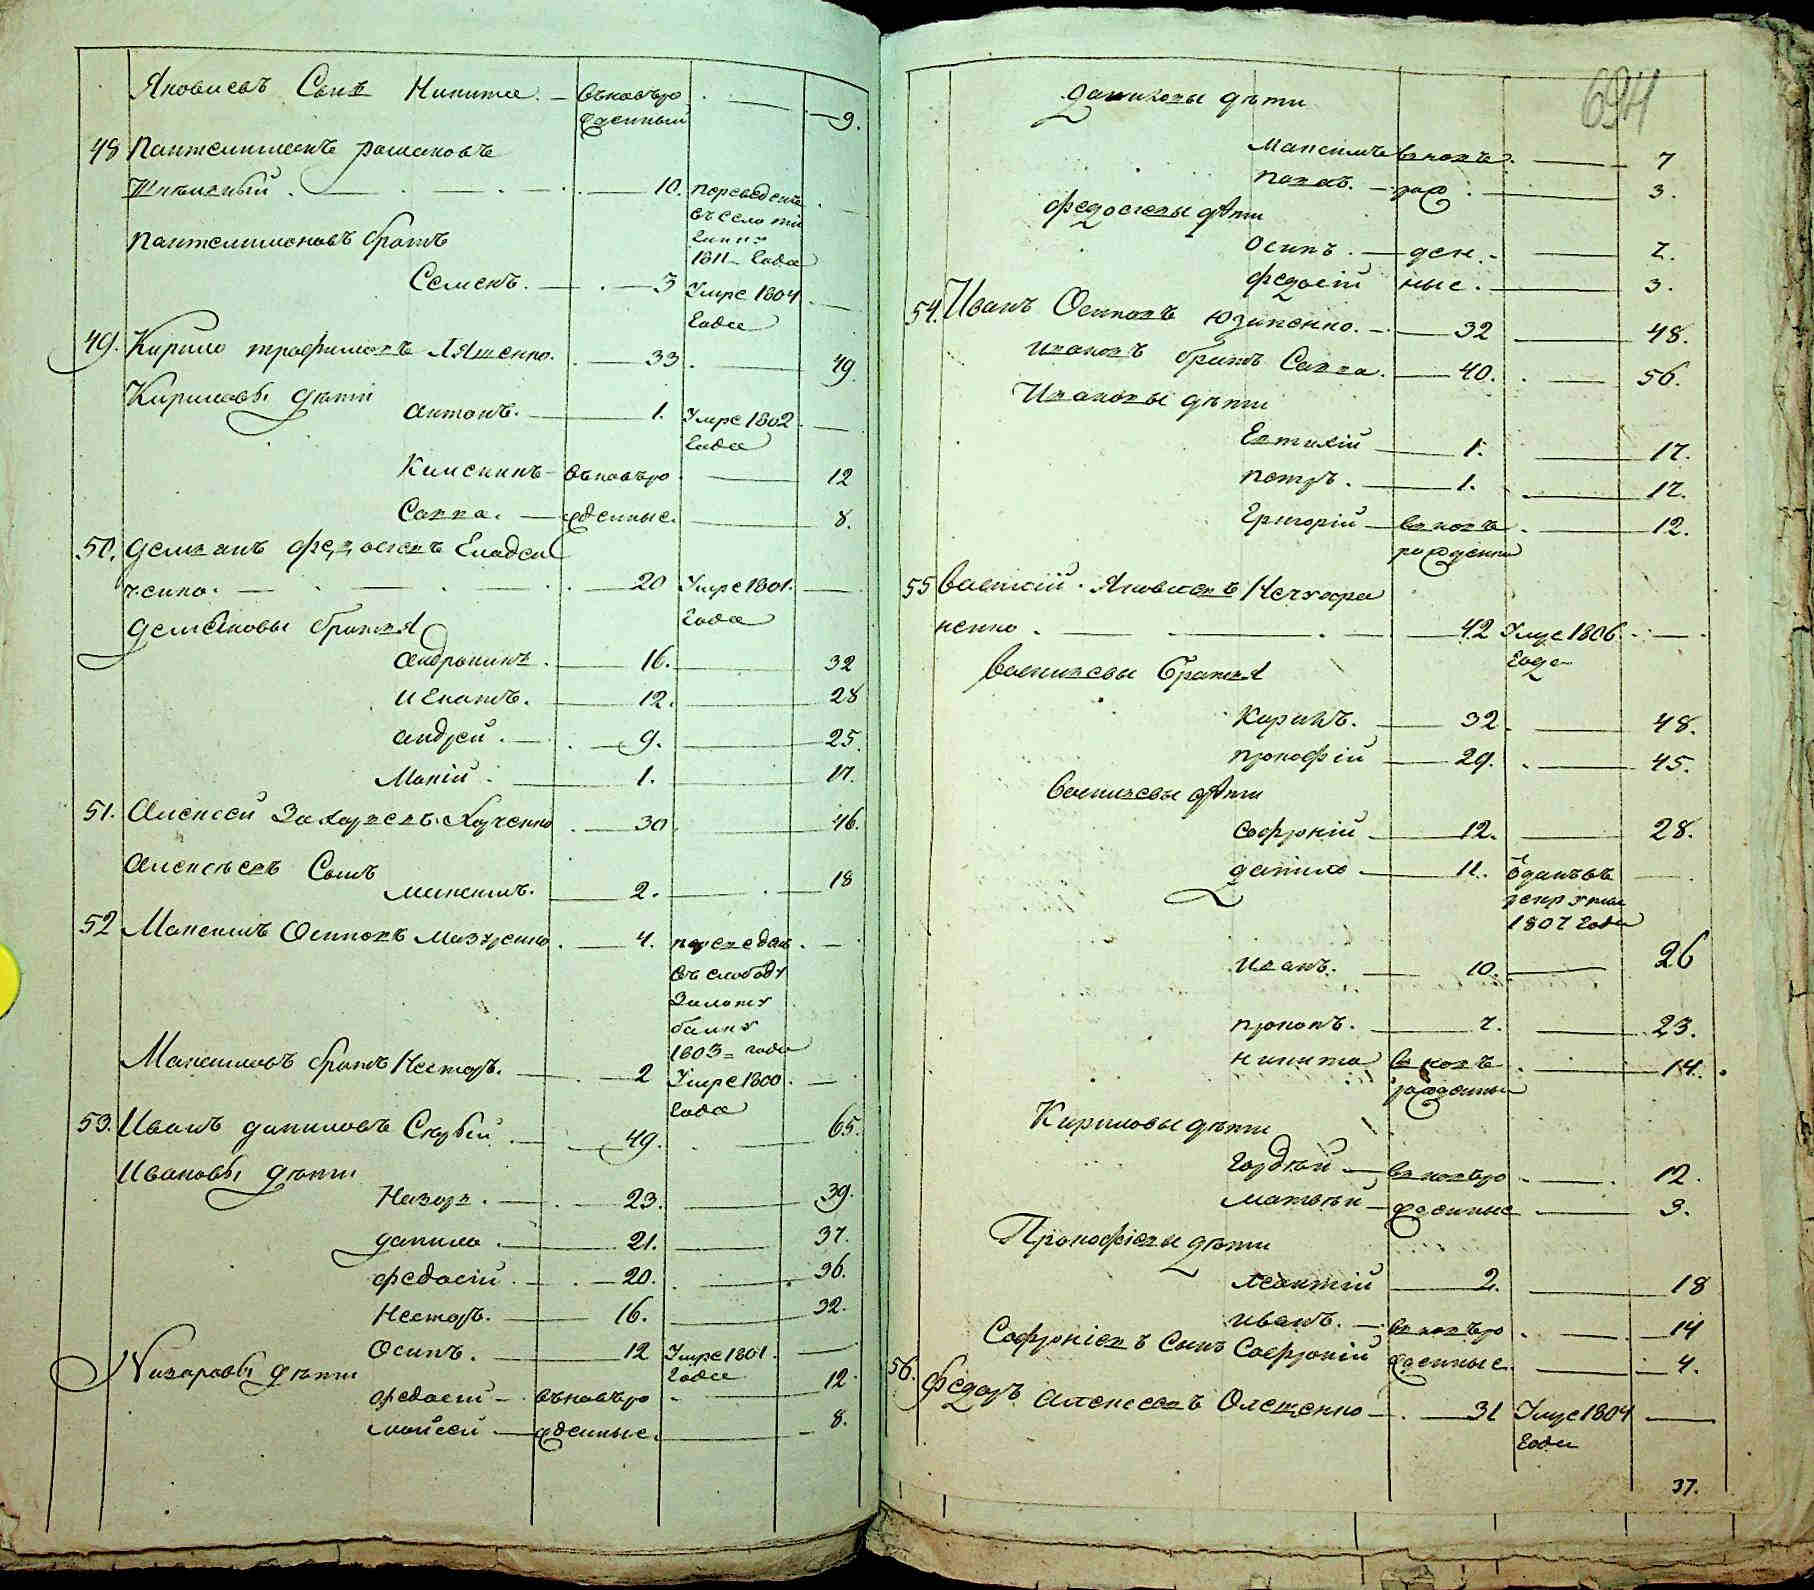 Яковлевъ Сынъ Никита — въновѣро — 9.
жденный
48 Пантелимонъ Романовъ
— 10. переведенъ
въ село
1811 года
Пантелимоновъ братъ
Семенъ. — 3 Умре 1804
Года
49. Кирило трофимовъ Ляшенко. — 33. — 49.
Кириловы дѣти
антонъ. — 1. Умре 1802
Года
Въновъро — 12
Савва. — жденные. — 8.
50. демьянъ федосіевъ
ченко. — 20 Умре 1801. —
Года
демьяновы братья
андроникъ. — 16. — 32
Игнатъ. — 12. — 28
андрей. — 9. — 25.
Мокій. — 1. — 17.
51. Алексей Захарьевъ Харченко — 30. — 46.
Алексѣевъ Сынъ
максимъ. — 2. — 18
52 Максимъ Осиповъ Мазуренко. — 4. переведенъ —
въ слободу
Залоту
балку
1803 = года
Максимовъ братъ Несторъ. — 2 Умре 1800. —
Года
53. Иванъ даниловъ Скубій — 49. — 65.
Ивановы дѣти
Назаръ. — 23. — 39.
данило. — 21. — 37.
федосій. — 20. — 36.
Несторъ. — 16. — 32.
Осипъ. — 12 Умре 1801. —
Года
Назаровы дѣти
федосій — въновъро — 12
моисей — жденные. — 8.
694
даниловы дѣти
Максимъ вновъ. — 7
павелъ. — рож. — 3.
федосіевы дѣти
Осипъ. — ден. — 7.
федосій ные. — 3.
54. Иванъ Осиповъ Юзипенко. — 32 — 48.
ивановъ братъ Савва. — 40. — 56.
Ивановы дѣти
Евтихій — 1. — 17.
петръ. — 1. — 17.
Григорій — вновъ — 12.
рожденны
55 Василій Яковлевъ
ненко. — 42 Умре 1806. —
Года
Васильевы Братья
Кирилъ. — 32 — 48.
прокофій — 29. — 45.
Васильевы дѣти
софроній — 12. — 28.
данило — 11. ѿданъ въ —
рекруты
1807 Года
Иванъ. — 10. — 26
прокопъ. — 7. — 23.
никита вновъ — 14.
рожденны
Кириловы дѣти
Гордѣй — вновъро — 12.
матвѣй — жденные — 9.
Прокофіевы дѣти
леонтій — 2 — 18
иванъ. — вновъро — 14
Софроніевъ Сынъ Софроній жденные. — 4.
56. Федоръ Алексеевъ Олешенко — 31 Умре 1804 —
Года
37.